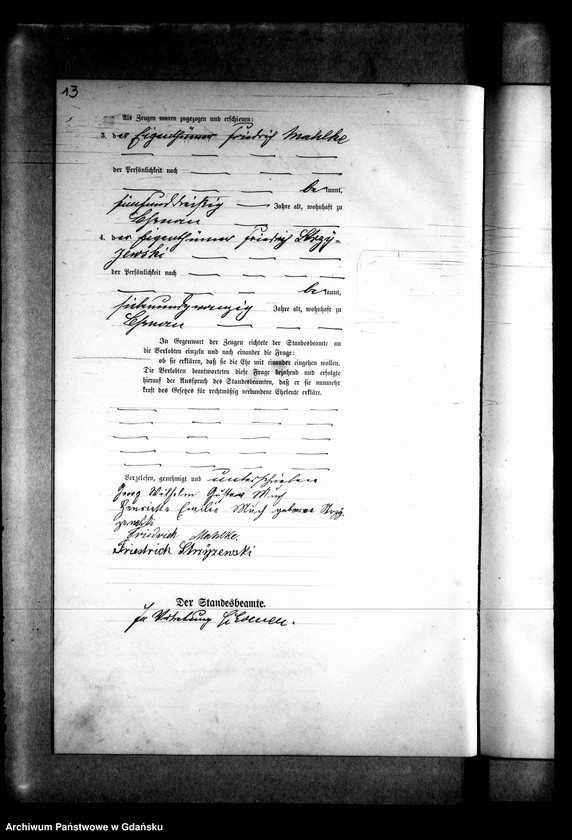 13
Als Zeugen waren zugezogen und erschienen:
3. der Eigenthümer Friedrich Mahlke
der Persönlichkeit nach
bekannt,
fünfunddreißig Jahre alt, wohnhaft zu
4. der Eigenthümer Friedrich Strzy-
zewski
der Persönlichkeit nach
bekannt,
siebenundzwanzig Jahre alt, wohnhaft zu
In Gegenwart der Zeugen richtete der Standesbeamte an
die Verlobten einzeln und nach einander die Frage:
ob sie erklären, daß sie die Ehe mit einander eingehen wollen.
Die Verlobten beantworteten diese Frage bejahend und erfolgte
hierauf der Ausspruch des Standesbeamten, daß er sie nunmehr
kraft des Gesetzes für rechtmäßig verbundene Eheleute erkläre.
Vorgelesen, genehmigt und unterschrieben
Georg Wilhelm Gustav Much
Henriette Emilie Much geborene Strzy-
zewski
Friedrich Mahlke.
Friedrich Strzyzewski
Der Standesbeamte.
In Vertretung
Archiwum Państwowe w Gdańsku